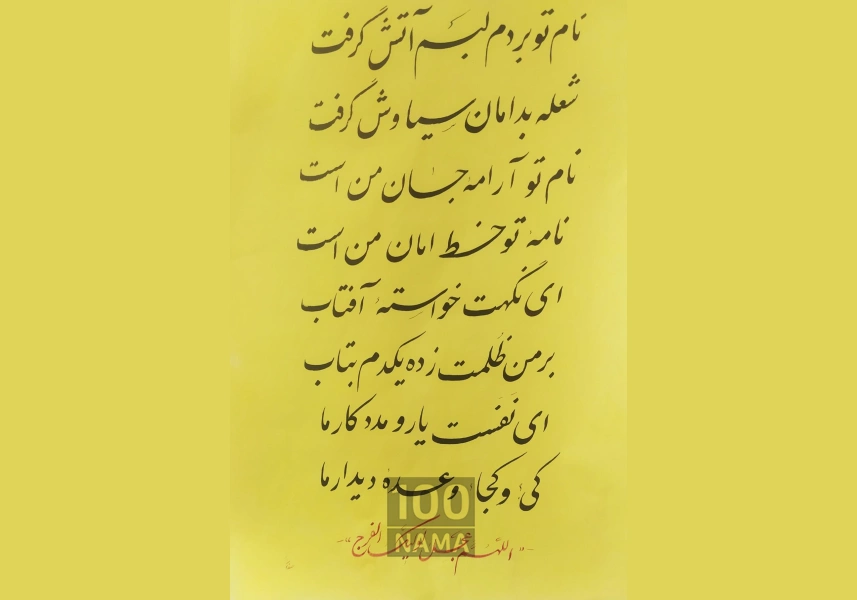 نام تو بردم لبم آتش گرفت
شعله بدامان سیاوش گرفت
نام تو آرامهٔ جان من است
نامهٔ تو خط امان من است
ای نگهت خواستهٔ آفتاب
بر من ظلمت زده یکدم بتاب
ای نَفَست یار و مدد کار ما
کی و کجا وعدهٔ دیدار ما
100
NAMA
-"اللهم عجل لولیک الفرج"-